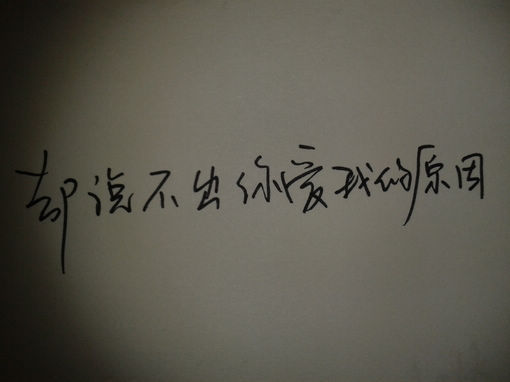 却说不出你爱我的原因